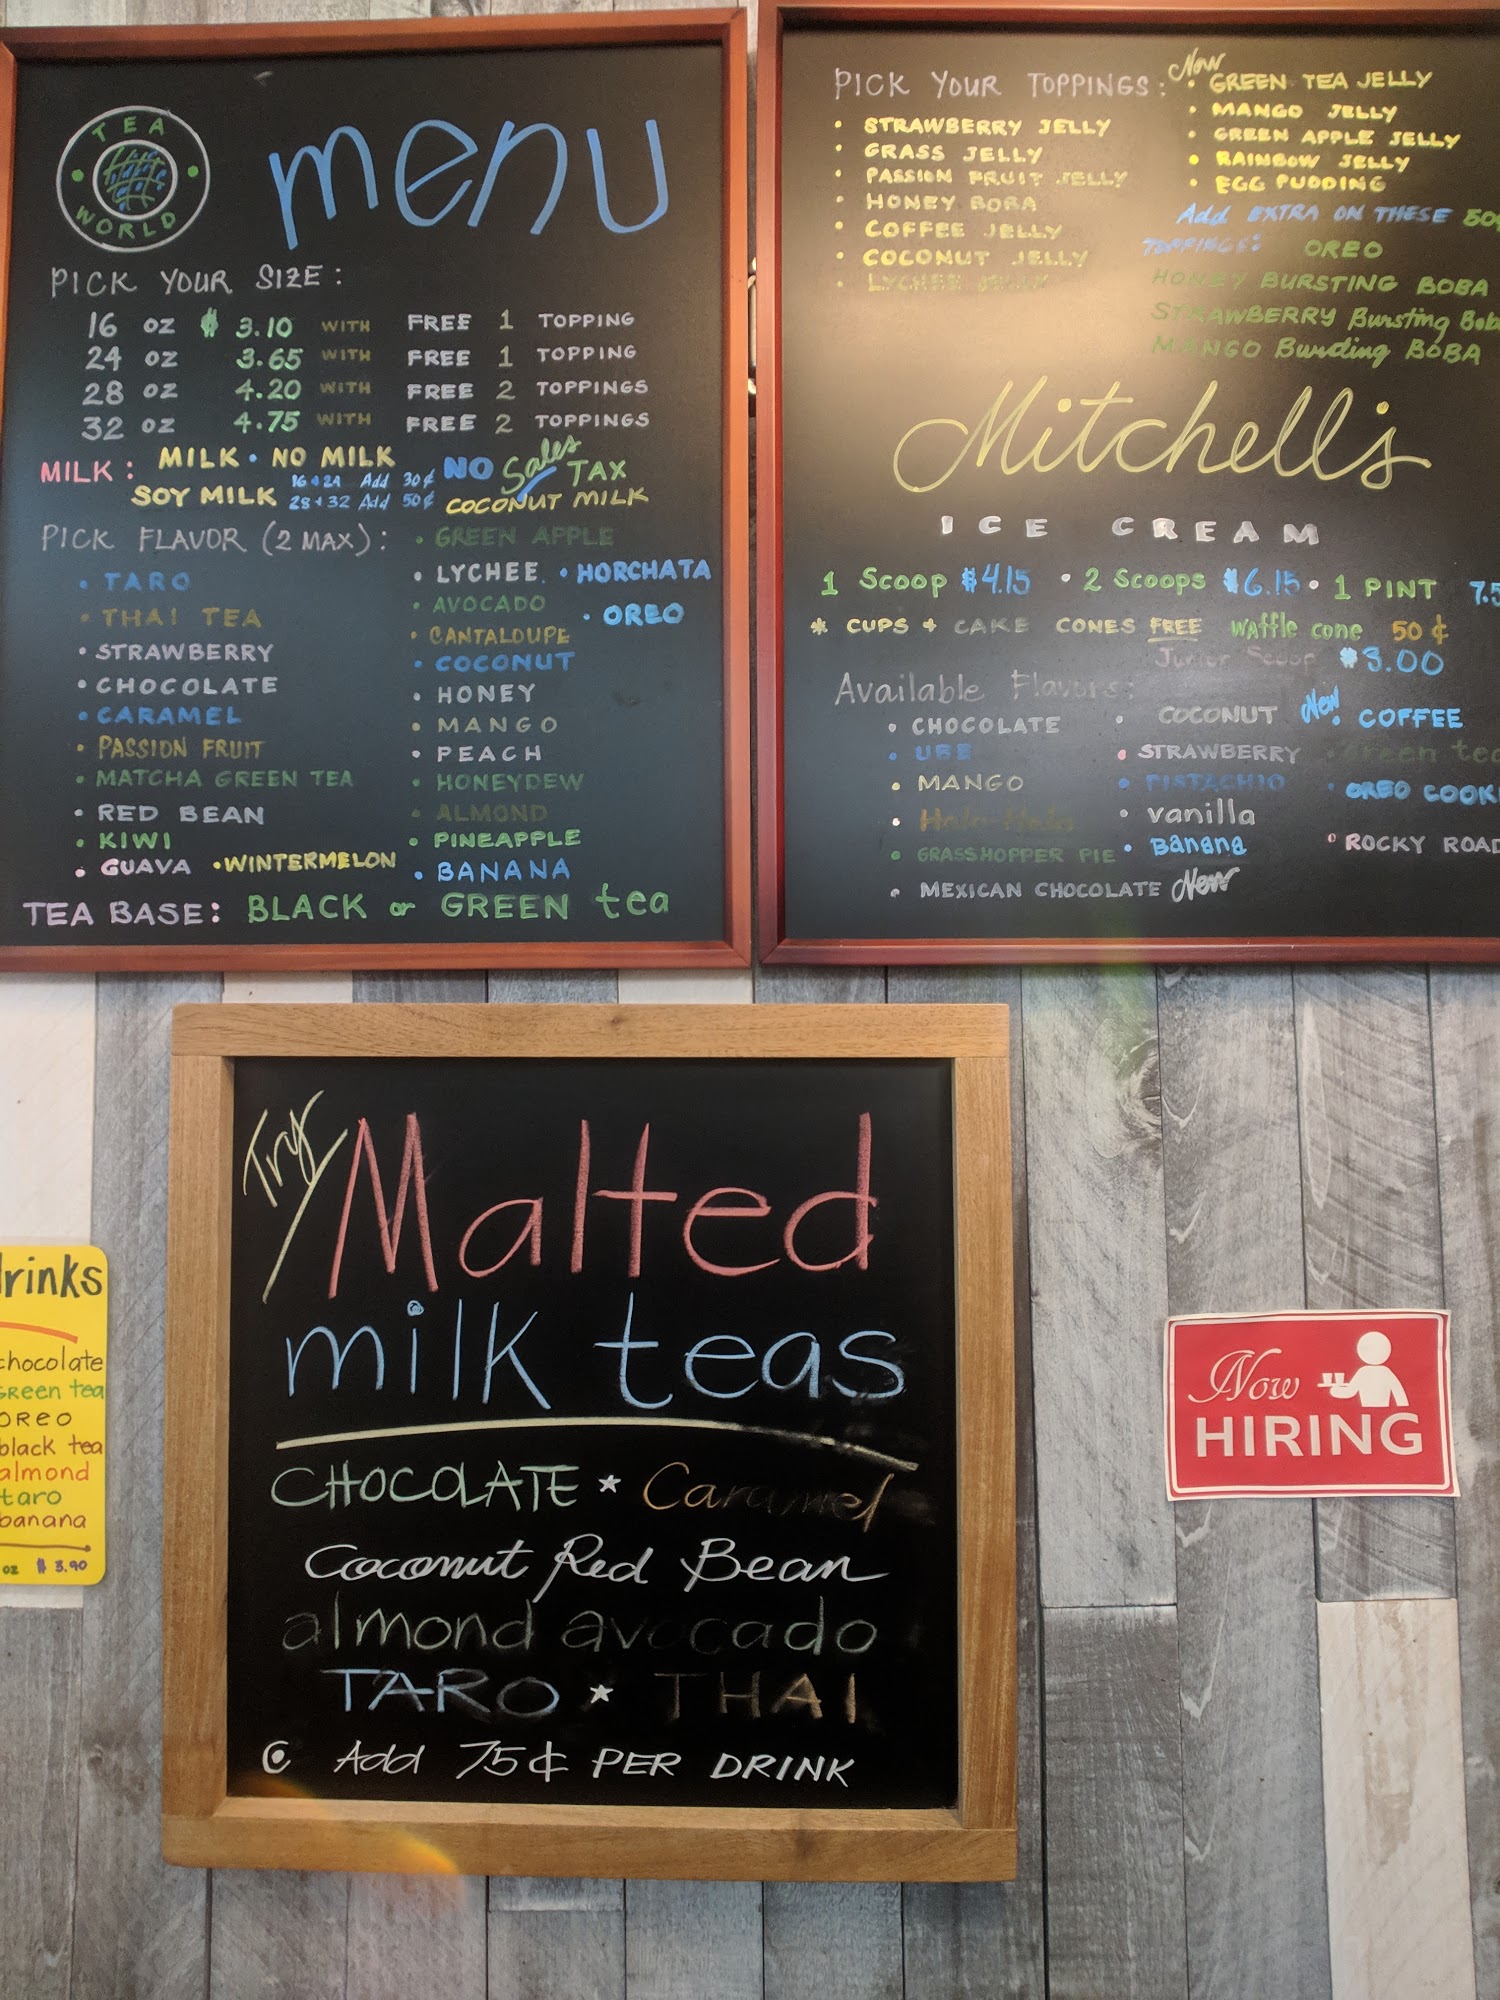 TEA
WORLD
menu
PICK YOUR SIZE:
16 oz $ 3.10 WITH FREE 1 TOPPING
24 oz 3.65 WITH FREE 1 TOPPING
28 oz 4.20 WITH FREE 2 TOPPINGS
32 oz 4.75 WITH FREE 2 TOPPINGS
MILK: MILK • NO MILK
SOY MILK 16+24 Add 30¢
28+32 Add 50¢
NO Sales TAX
COCONUT MILK
PICK FLAVOR (2 MAX):
• TARO
• THAI TEA
• STRAWBERRY
• CHOCOLATE
• CARAMEL
• PASSION FRUIT
• MATCHA GREEN TEA
• RED BEAN
• KIWI
• GUAVA • WINTERMELON
• GREEN APPLE
• LYCHEE • HORCHATA
• AVOCADO • OREO
• CANTALOUPE
• COCONUT
• HONEY
• MANGO
• PEACH
• HONEYDEW
• ALMOND
• PINEAPPLE
• BANANA
TEA BASE: BLACK or GREEN tea
PICK YOUR TOPPINGS:
• STRAWBERRY JELLY
• GRASS JELLY
• PASSION FRUIT JELLY
• HONEY BOBA
• COFFEE JELLY
• COCONUT JELLY
• LYCHEE JELLY
Now
• GREEN TEA JELLY
• MANGO JELLY
• GREEN APPLE JELLY
• RAINBOW JELLY
• EGG PUDDING
Add EXTRA ON THESE 50¢
TOPPINGS: OREO
HONEY BURSTING BOBA
STRAWBERRY Bursting Boba
MANGO Bursting BOBA
Mitchell's
ICE CREAM
1 Scoop $4.15 • 2 Scoops $6.15 • 1 PINT 7.5
* CUPS + CAKE CONES FREE Waffle cone 50¢
Junior Scoop $3.00
Available Flavors:
• CHOCOLATE
• UBE
• MANGO
• Halo-Halo
• GRASSHOPPER PIE
• MEXICAN CHOCOLATE New
• COCONUT
• STRAWBERRY
• PISTACHIO
• vanilla
• Banana
New • COFFEE
• Green tea
• OREO COOKI
• ROCKY ROAD
Try
Malted
milk teas
CHOCOLATE * Caramel
Coconut Red Bean
almond avocado
TARO * THAI
Add 75¢ PER DRINK
drinks
chocolate
Green tea
OREO
black tea
almond
taro
banana
oz $ 3.90
Now
HIRING